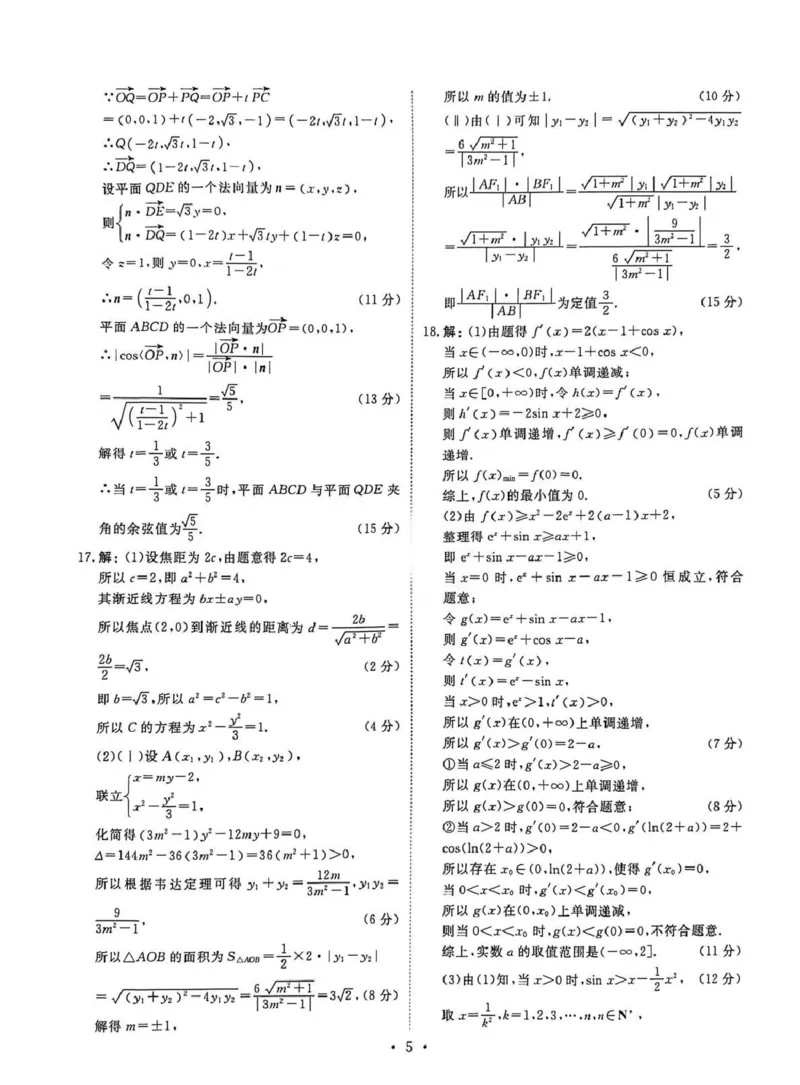 ∵$\overrightarrow{OQ}=\overrightarrow{OP}+\overrightarrow{PQ}=\overrightarrow{OP}+t\overrightarrow{PC}$
=(0,0,1)+t(-2,√3,-1)=(-2t,√3t,1-t),
∴Q(-2t,√3t,1-t),
∴$\overrightarrow{DQ}$=(1-2t,√3t,1-t),
设平面 QDE 的一个法向量为 n=(x,y,z),
则$\begin{cases}n\cdot\overrightarrow{DE}=\sqrt{3}y=0,\\n\cdot\overrightarrow{DQ}=(1-2t)x+\sqrt{3}ty+(1-t)z=0,\end{cases}$
令 z=1,则 y=0,x=$\frac{t-1}{1-2t}$,
∴n=$\left(\frac{t-1}{1-2t},0,1\right)$. (11 分)
平面 ABCD 的一个法向量为$\overrightarrow{OP}$=(0,0,1),
∴|cos⟨$\overrightarrow{OP}$,n⟩|=$\frac{|\overrightarrow{OP}\cdot n|}{|\overrightarrow{OP}|\cdot|n|}$
=$\frac{1}{\sqrt{\left(\frac{t-1}{1-2t}\right)^2+1}}=\frac{\sqrt{5}}{5}$, (13 分)
解得 t=$\frac{1}{3}$或 t=$\frac{3}{5}$.
∴当 t=$\frac{1}{3}$或 t=$\frac{3}{5}$时,平面 ABCD 与平面 QDE 夹
角的余弦值为$\frac{\sqrt{5}}{5}$. (15 分)
17.解:(1)设焦距为 2c,由题意得 2c=4,
所以 c=2,即 a²+b²=4,
其渐近线方程为 bx±ay=0,
所以焦点(2,0)到渐近线的距离为 d=$\frac{2b}{\sqrt{a^2+b^2}}$=
$\frac{2b}{2}$=√3, (2 分)
即 b=√3,所以 a²=c²-b²=1,
所以 C 的方程为 x²-$\frac{y^2}{3}$=1. (4 分)
(2)(ⅰ)设 A(x₁,y₁),B(x₂,y₂),
联立$\begin{cases}x=my-2,\\x^2-\frac{y^2}{3}=1,\end{cases}$
化简得(3m²-1)y²-12my+9=0,
Δ=144m²-36(3m²-1)=36(m²+1)>0,
所以根据韦达定理可得 y₁+y₂=$\frac{12m}{3m^2-1}$,y₁y₂=
$\frac{9}{3m^2-1}$, (6 分)
所以△AOB 的面积为 $S_{△AOB}=\frac{1}{2}$×2·|y₁-y₂|
=$\sqrt{(y_1+y_2)^2-4y_1y_2}=\frac{6\sqrt{m^2+1}}{|3m^2-1|}=3\sqrt{2}$,(8 分)
解得 m=±1,
所以 m 的值为±1. (10 分)
(ⅱ)由(ⅰ)可知|y₁-y₂|=$\sqrt{(y_1+y_2)^2-4y_1y_2}$
=$\frac{6\sqrt{m^2+1}}{|3m^2-1|}$,
所以$\frac{|AF_1|\cdot|BF_1|}{|AB|}=\frac{\sqrt{1+m^2}|y_1|\sqrt{1+m^2}|y_2|}{\sqrt{1+m^2}|y_1-y_2|}$
=$\frac{\sqrt{1+m^2}\cdot|y_1y_2|}{|y_1-y_2|}=\frac{\sqrt{1+m^2}\cdot\left|\frac{9}{3m^2-1}\right|}{\frac{6\sqrt{m^2+1}}{|3m^2-1|}}=\frac{3}{2}$,
即$\frac{|AF_1|\cdot|BF_1|}{|AB|}$为定值$\frac{3}{2}$. (15 分)
18.解:(1)由题得 f′(x)=2(x-1+cos x),
当 x∈(-∞,0)时,x-1+cos x<0,
所以 f′(x)<0,f(x)单调递减;
当 x∈[0,+∞)时,令 h(x)=f′(x),
则 h′(x)=-2sin x+2≥0,
则 f′(x)单调递增,f′(x)≥f′(0)=0,f(x)单调
递增.
所以 f(x)ₘᵢₙ=f(0)=0.
综上,f(x)的最小值为 0. (5 分)
(2)由 f(x)≥x²-2eˣ+2(a-1)x+2,
整理得 eˣ+sin x≥ax+1,
即 eˣ+sin x-ax-1≥0,
当 x=0 时,eˣ+sin x-ax-1≥0 恒成立,符合
题意;
令 g(x)=eˣ+sin x-ax-1,
则 g′(x)=eˣ+cos x-a,
令 t(x)=g′(x),
则 t′(x)=eˣ-sin x,
当 x>0 时,eˣ>1,t′(x)>0,
所以 g′(x)在(0,+∞)上单调递增,
所以 g′(x)>g′(0)=2-a, (7 分)
①当 a≤2 时,g′(x)>2-a≥0,
所以 g(x)在(0,+∞)上单调递增,
所以 g(x)>g(0)=0,符合题意; (8 分)
②当 a>2 时,g′(0)=2-a<0,g′(ln(2+a))=2+
cos(ln(2+a))>0,
所以存在 x₀∈(0,ln(2+a)),使得 g′(x₀)=0,
当 0<x<x₀ 时,g′(x)<g′(x₀)=0,
所以 g(x)在(0,x₀)上单调递减,
则当 0<x<x₀ 时,g(x)<g(0)=0,不符合题意.
综上,实数 a 的取值范围是(-∞,2]. (11 分)
(3)由(1)知,当 x>0 时,sin x>x-$\frac{1}{2}$x², (12 分)
取 x=$\frac{1}{k^2}$,k=1,2,3,…,n,n∈N*,
· 5 ·